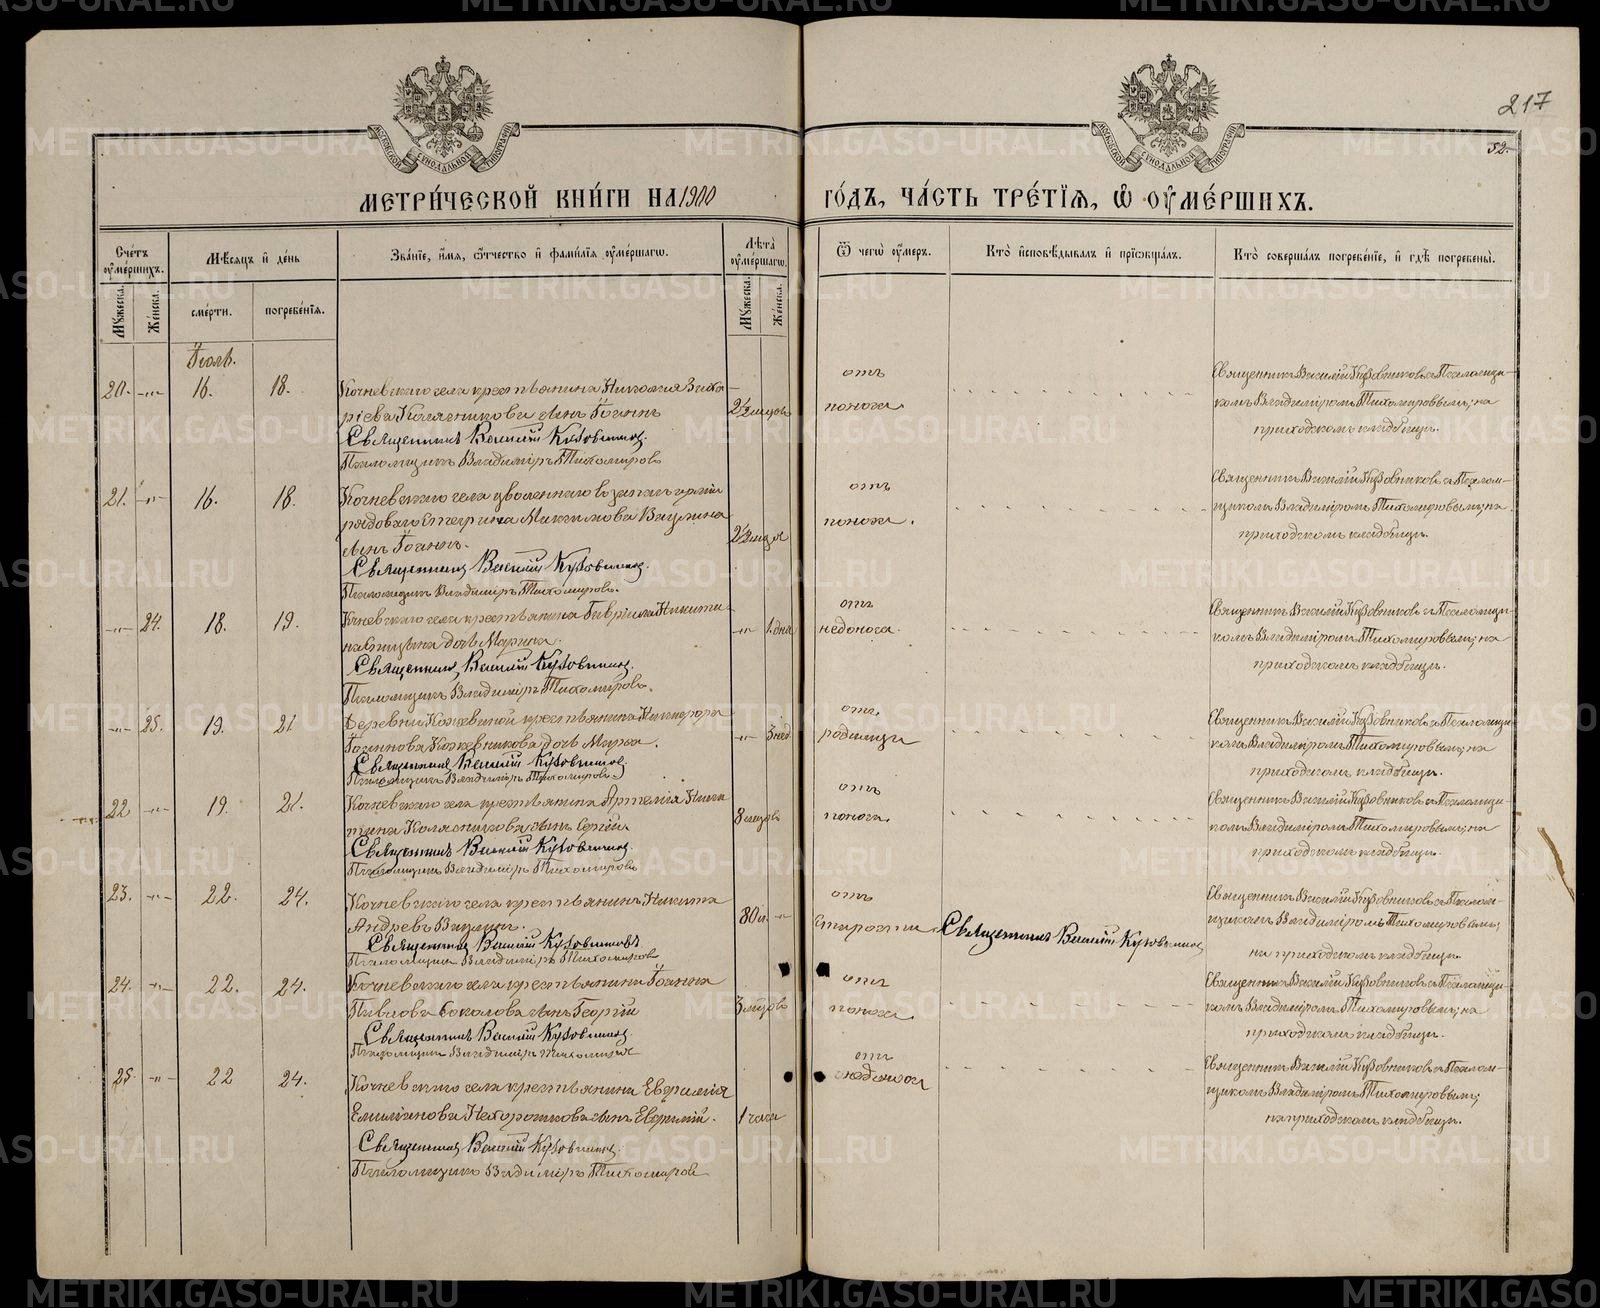 217
52.
МОСКОВСКОЙ СѴНОДАЛЬНОЙ ТИПОГРАФІИ
МОСКОВСКОЙ СѴНОДАЛЬНОЙ ТИПОГРАФІИ
МЕТРИ́ЧЕСКОЙ КНИ́ГИ НА 1900 ГО́ДЪ, ЧА́СТЬ ТРЕ́ТІЯ, Ѡ ОУМЕ́РШИХЪ.
Сче́тъ оуме́ршихъ.
Мужеска.
Же́нска.
Мѣ́сяцъ и де́нь
сме́рти.
погребе́нїя.
Зва́нїе, и́мя, ѻ́тчество и фами́лїя оуме́ршагѡ.
Лѣ́та оуме́ршагѡ.
Мужеска.
Же́нска.
Ѿ чегѡ̀ оу́меръ.
Кто̀ исповѣ́дывалъ и прїѡбща́лъ.
Кто̀ соверша́лъ погребе́нїе, и гдѣ̀ погребены̀.
Іюль.
20. -"- 16. 18.
Кочневскаго села крестьянина Николая Заха-
ріева Колясникова сынъ Іоаннъ
Священникъ Василій Кузовников.
Псаломщикъ Владиміръ Тихомировъ
2½ мцовъ
отъ
поноса.
Священникъ Василій Кузовниковъ с Псаломщи-
комъ Владиміромъ Тихомировымъ; на
приходскомъ кладбищѣ.
21. -"- 16. 18.
Кочневскаго села уволеннаго въ запасъ арміи
рядоваго Максимова Вацлина
сынъ Іоаннъ.
Священникъ Василій Кузовников.
Псаломщикъ Владиміръ Тихомировъ.
2½ мцов
отъ
поноса.
Священникъ Василій Кузовниковъ с Псалом-
щикомъ Владиміромъ Тихомировымъ; на
приходскомъ кладбищѣ.
-"- 24. 18. 19.
Кочневскаго села крестьянина Гавріила Никити-
на дочь Марина.
Священникъ Василій Кузовников.
Псаломщикъ Владиміръ Тихомировъ.
-"- 1 дня
отъ
недоноса.
Священникъ Василій Кузовниковъ с Псаломщи-
комъ Владиміромъ Тихомировымъ; на
приходскомъ кладбищѣ.
-"- 25. 19. 21.
Деревни крестьянина Никифора
дочь Марѳа.
Священникъ Василій Кузовников.
Псаломщикъ Владиміръ Тихомировъ.
-"- 3 нед
отъ
родимца
Священникъ Василій Кузовниковъ с Псаломщи-
комъ Владиміромъ Тихомировымъ; на
приходскомъ кладбищѣ.
22 -"- 19. 21.
Кочневскаго села крестьянина Артемія Ники-
тина Колясникова сынъ Сергій
Священникъ Василій Кузовников.
Псаломщикъ Владиміръ Тихомировъ
8 мцовъ
отъ
поноса.
Священникъ Василій Кузовниковъ с Псаломщи-
комъ Владиміромъ Тихомировымъ; на
приходскомъ кладбищѣ.
23. -"- 22. 24.
Кочневскаго села крестьянинъ Никита
Андреевъ Вацлинъ.
Священникъ Василій Кузовниковъ
Псаломщикъ Владиміръ Тихомировъ
80 л. -"-
отъ
старости
Священникъ Василій Кузовников
Священникъ Василій Кузовниковъ с Псалом-
щикомъ Владиміромъ Тихомировымъ;
на приходскомъ кладбищѣ.
24. -"- 22. 24.
Кочневскаго села крестьянина Іоанна
Павлова Соколова сынъ Георгій
Священникъ Василій Кузовников.
Псаломщикъ Владиміръ Тихомировъ
3 мцовъ
отъ
поноса
Священникъ Василій Кузовниковъ с Псаломщи-
комъ Владиміромъ Тихомировымъ; на
приходскомъ кладбищѣ.
25. -"- 22 24.
Кочневскаго села крестьянина Евфимія
Емиліанова Нехорошкова сынъ Евфимій.
Священникъ Василій Кузовников.
Псаломщикъ Владиміръ Тихомиров
1 часа
отъ
недоноса
Священникъ Василій Кузовниковъ с Псалом-
щикомъ Владиміромъ Тихомировымъ;
на приходскомъ кладбищѣ.
METRIKI.GASO-URAL.RU